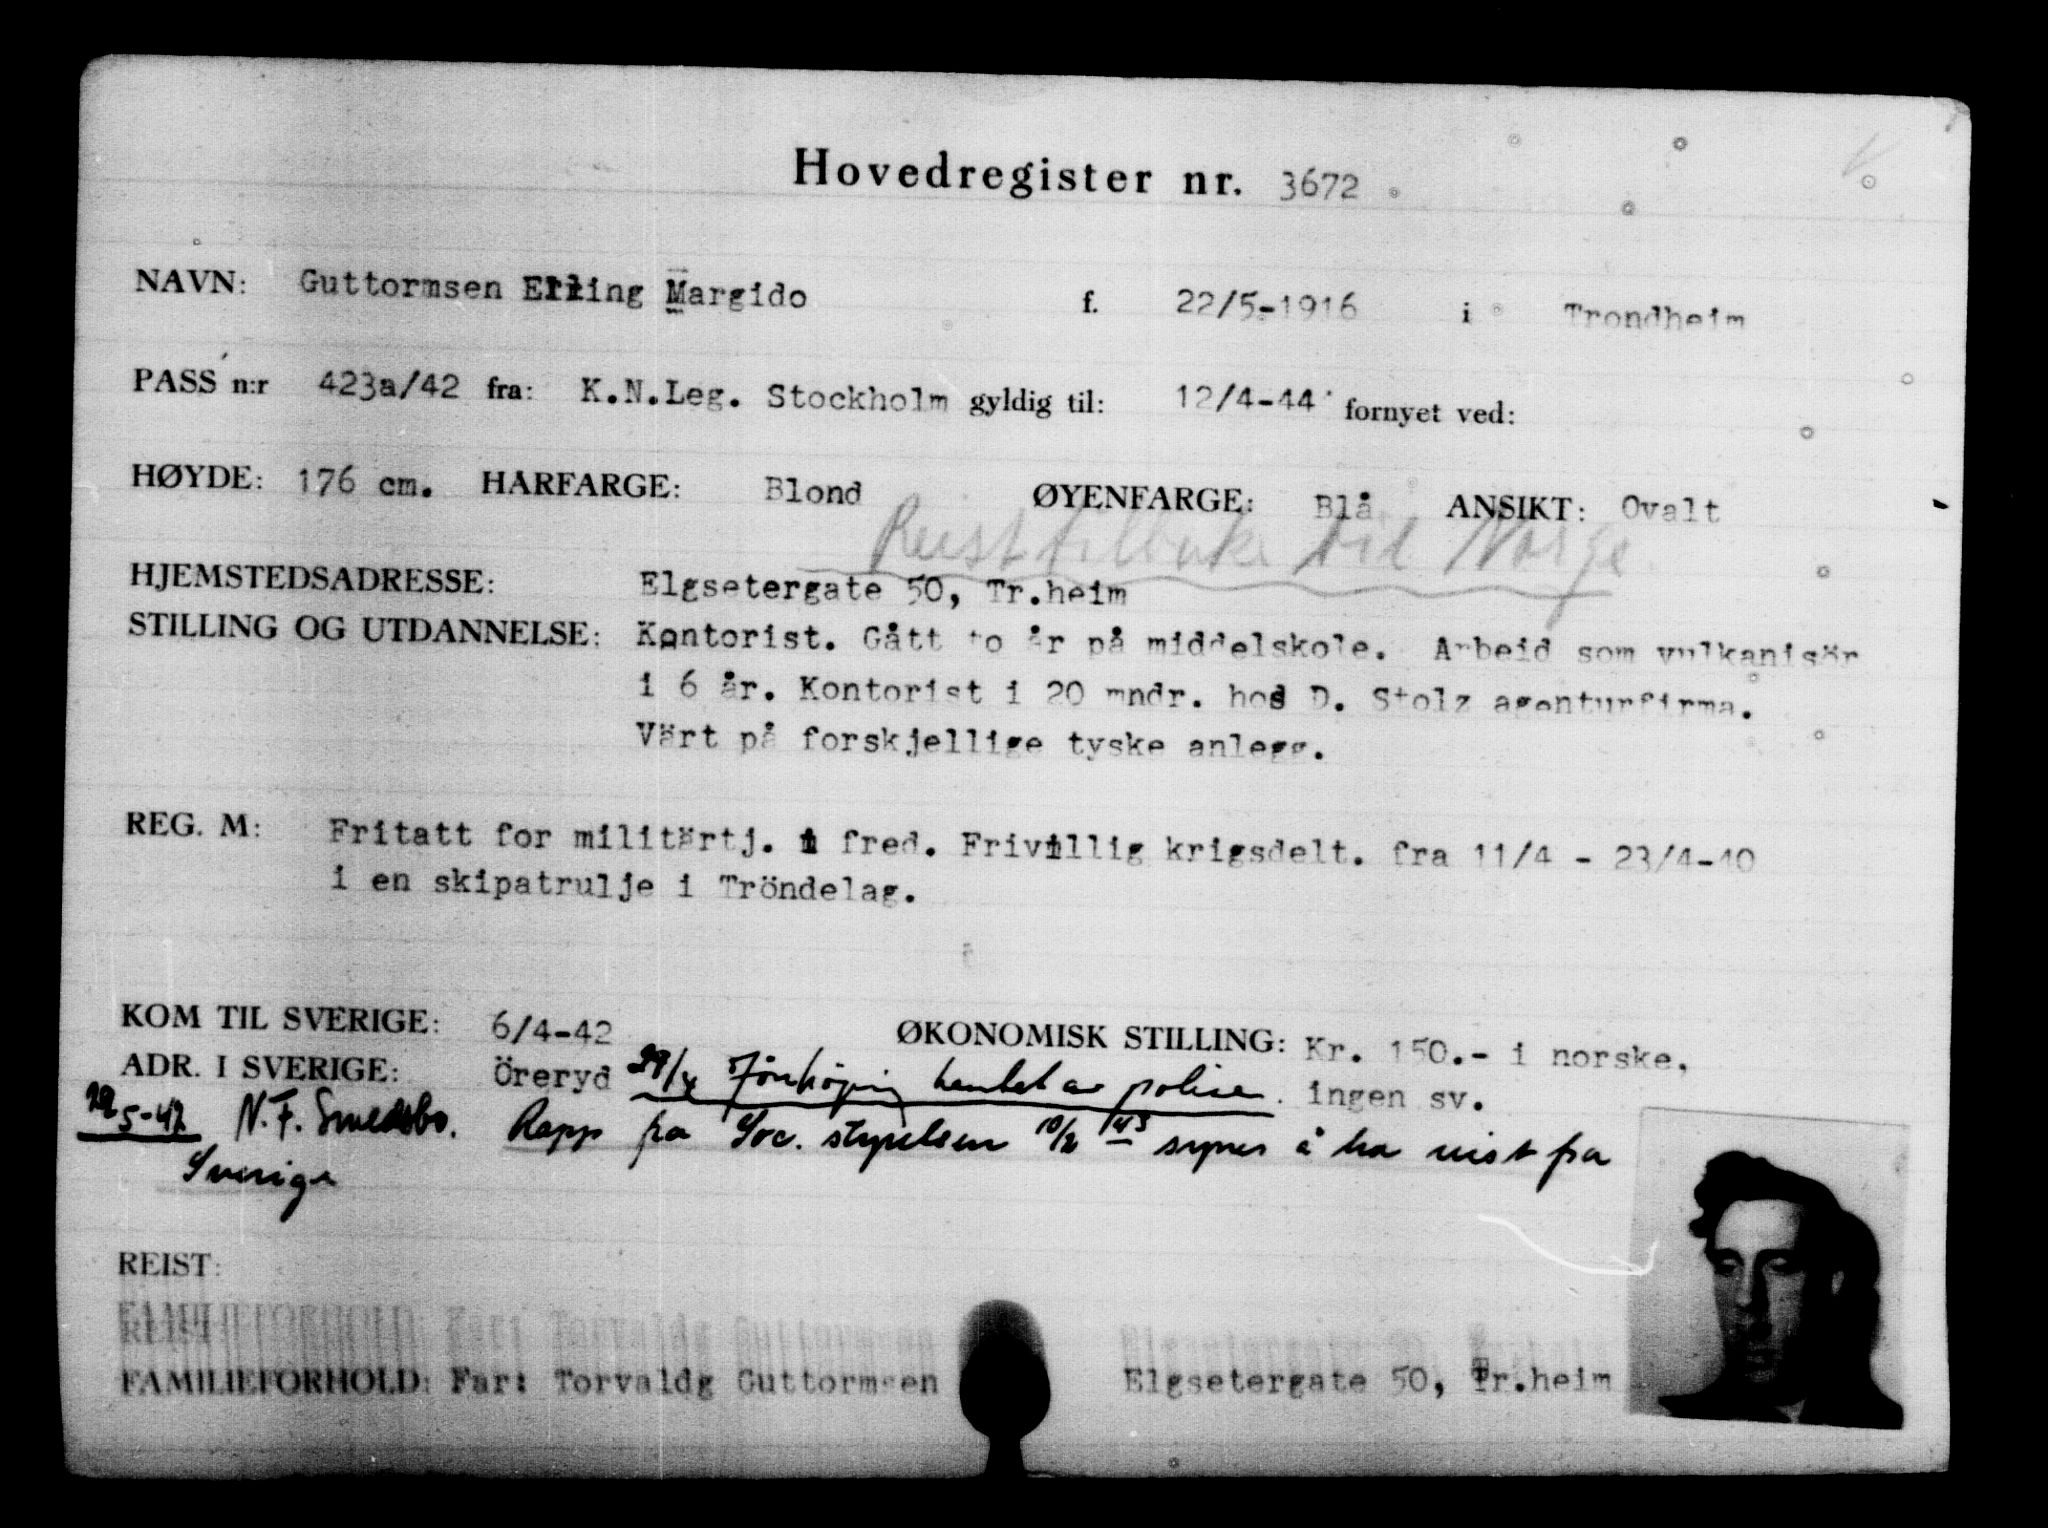 Hovedregister nr. 3672
NAVN: Guttormsen Erling Margido f. 22/5-1916 i Trondheim
PASS n:r 423a/42 fra: K.N.Leg. Stockholm gyldig til: 12/4-44 fornyet ved:
HØYDE: 176 cm. HARFARGE: Blond ØYENFARGE: Blå ANSIKT: Ovalt
Reist tilbake til Norge
HJEMSTEDSADRESSE: Elgsetergate 50, Tr.heim
STILLING OG UTDANNELSE: Kontorist. Gått to år på middelskole. Arbeid som vulkanisör
i 6 år. Kontorist i 20 mndr. hos D. Stolz agenturfirma.
Värt på forskjellige tyske anlegg.
REG. M: Fritatt for militärtj. i fred. Frivillig krigsdelt. fra 11/4 - 23/4-40
i en skipatrulje i Tröndelag.
KOM TIL SVERIGE: 6/4-42 ØKONOMISK STILLING: Kr. 150.- i norske,
ADR. I SVERIGE: Öreryd 29/4 Jönköping hentet av polise. ingen sv.
29/5-42 N.F. Smedsbo. Rapp fra Soc. styrelsen 10/2 43 synes å ha reist fra
Sverige
REIST:
FAMILIEFORHOLD: Far: Torvaldg Guttormsen Elgsetergate 50, Tr.heim